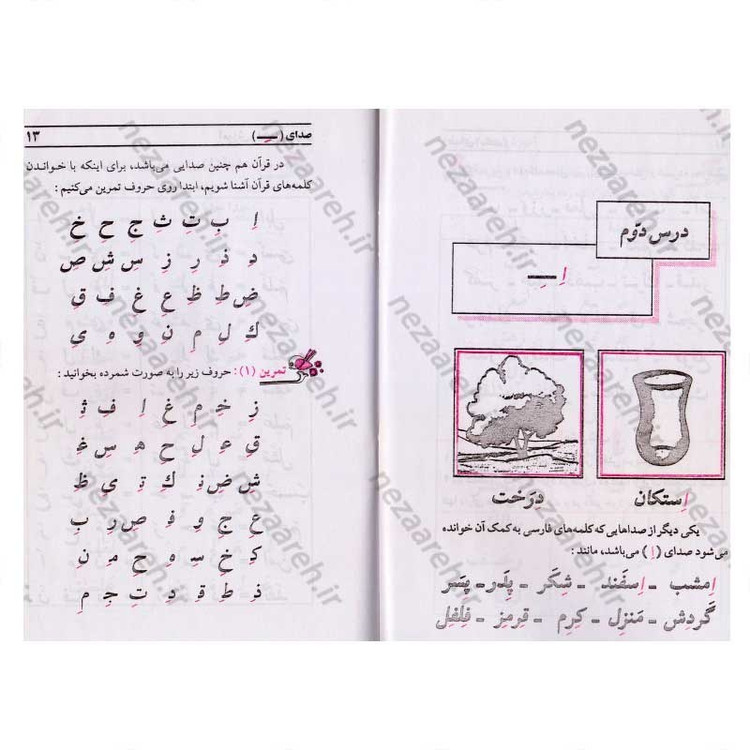 درس دوّم
اِـــِـ
اِستکان
دِرَخت
یکی دیگر از صداهایی که کلمه‌های فارسی به کمک آن خوانده
می‌شود صدای (اِ) می‌باشد، مانند :
اِمشب ـ اِسفَند ـ شِکَر ـ پِدَر ـ پِسَر
گَردِش ـ مَنزِل ـ کِرِم ـ قِرمِز ـ فِلفِل
صدای (ـــِـ) ۱۳
در قرآن هم چنین صدایی می‌باشد، برای اینکه با خواندن
کلمه‌های قرآن آشنا شویم، ابتدا روی حروف تمرین می‌کنیم :
اِ بِ تِ ثِ جِ حِ خِ
دِ ذِ رِ زِ سِ شِ صِ
ضِ طِ ظِ عِ غِ فِ قِ
كِ لِ مِ نِ وِ هِ یِ
تمرین (۱) : حروف زیر را به صورت شمرده بخوانید :
زِ خِ مِ غِ اِ فِ ثِ
قِ عِ لِ حِ هِ سِ غِ
شِ ضِ نِ كِ تِ یِ ظِ
عِ جِ وِ فِ صِ رِ بِ
كِ خِ سِ وِ حِ مِ نِ
ذِ طِ قِ دِ تِ جِ مِ
nezaareh.ir